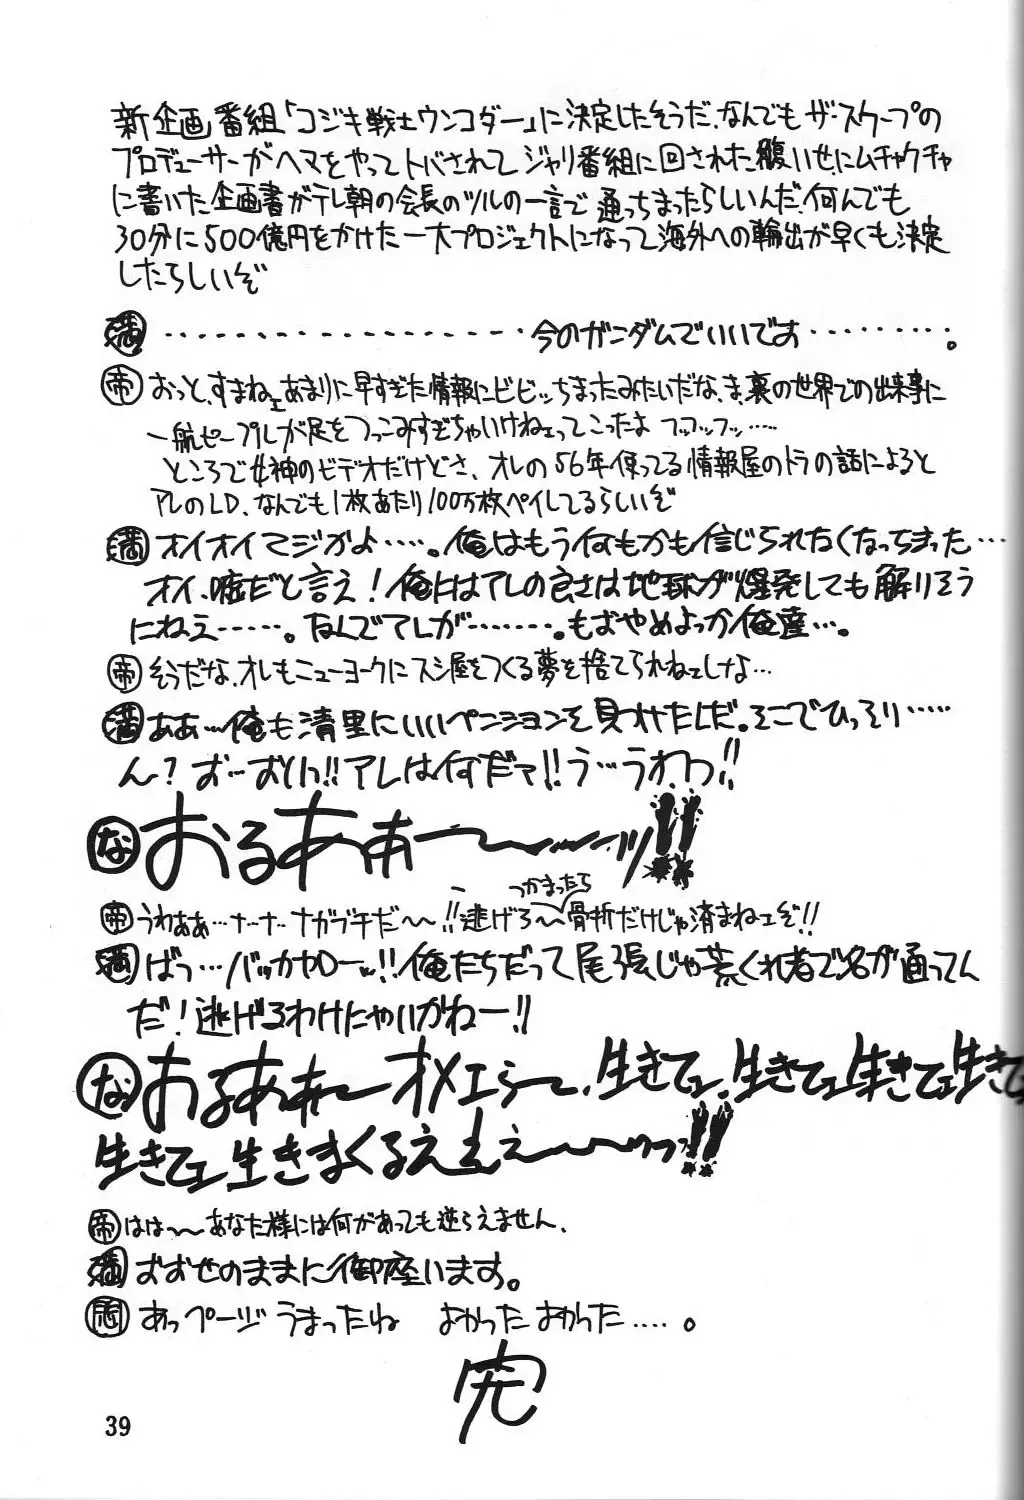 新企画番組「コジキ戦士ウンコダー」に決定したそうだ、なんでもザ・スクープの
プロデューサーがヘマをやってトバされてジャリ番組に回された腹いせにムチャクチャ
に書いた企画書がテレ朝の会長のツルの一言で通っちまったらしいんだ、何んでも
30分に500億円をかけた一大プロジェクトになって海外への輸出が早くも決定
したらしいぞ
満 ・・・・・・・・・・・・・・・・・・・・今のガンダムでいいです・・・・・・・・。
帝 おっと、すまねェあまりに早すぎた情報にビビッちまったみたいだな、ま、裏の世界での出来事に
一般ピープルが足をつっこみすぎちゃいけねェってこったよ フッフッフッ・・・・・
ところで女神のビデオだけどさ、オレの56年使ってる情報屋のトラの話によると
アレのLD、なんでも1枚あたり100万枚ペイしてるらしいぞ
満 オイオイマジかよ・・・・・。俺はもう何もかも信じられなくなっちまった・・・
オイ、嘘だと言え！俺にはアレの良さは地球が爆発しても解りそう
にねえ・・・・・・。なんでアレが・・・・・・・。もおやめよっか俺達・・・。
帝 そうだな、オレもニューヨークにスシ屋をつくる夢を捨てられねェしなよ・・・
満 ああ・・・俺も清里にいいペンションを見つけたしだ。そこでひっそり・・・・・
ん？おーおいっ!!アレは何だァ!!う・・・うわっ!!
な おるあぁー〜〜ッ!!
帝 うわぁぁ・・・ナ・・ナ・・ナガブチだ〜〜!!逃げろ〜つかまったら骨折だけじゃ済まねェぞ!!
満 ばっ・・・バッカヤローッ!!俺たちだって尾張じゃ荒くれ者で名が通ってん
だ！逃げるわけにゃいかねー!!
な おるああぁ〜オメェら〜、生きてェ、生きてェ生きてェ生きて
生きてェ生きまくるええぇ〜〜ゥっ!!
帝 はは〜〜あなた様には何があっても逆らえません、
満 おおせのままに御座います。
愚 あっページうまったね よかったよかった・・・・。
完
39